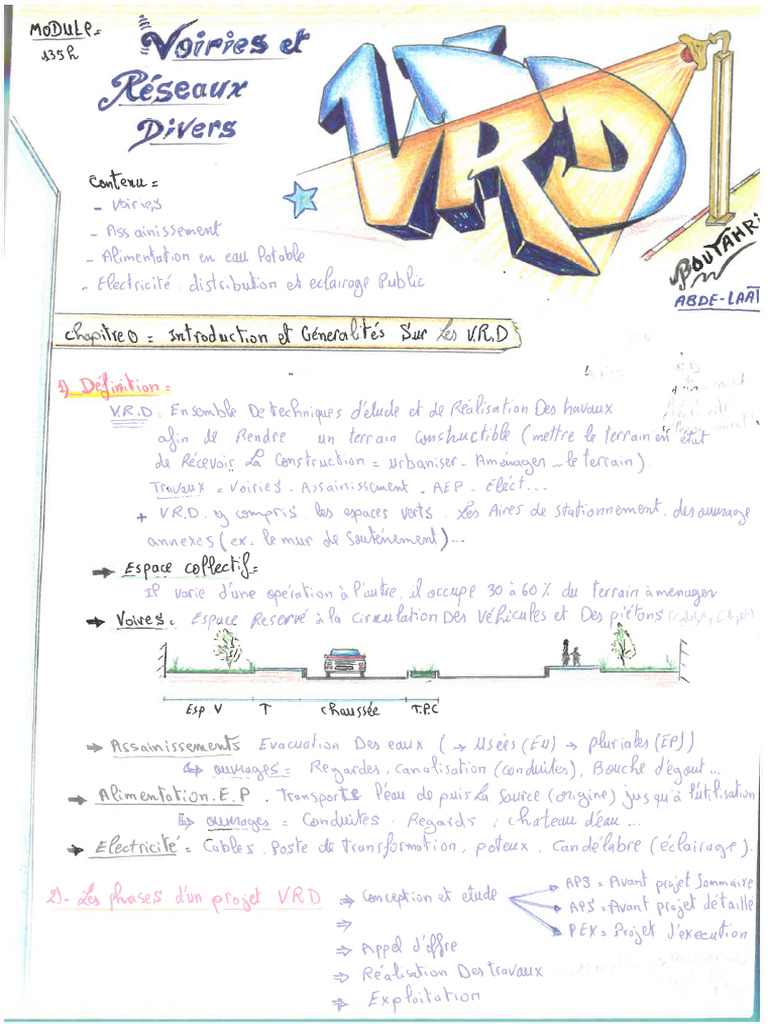 MODULE =
135h
Voiries et
Réseaux
Divers
VRD
Contenu =
- Voiries
- Assainissement
- Alimentation en eau Potable
- Electricité : distribution et eclairage Public
BOUTAHRI
ABDE-LAÂT
chapitre 0 = Introduction et Géneralités Sur Les V.R.D
1) Définition =
V.R.D : Ensemble De techniques d'étude et de Réalisation Des travaux
afin de Rendre un terrain constructible (mettre le terrain en état
de Récevoir La Construction = urbaniser - Aménager - le terrain).
Travaux = Voiries - Assainissement - AEP - Eléct...
+ V.R.D. y compris les espaces verts. Les Aires de stationnement, des ouvrage
annexes (ex. le mur de Souténement)...
→ Espace collectif =
Il varie d'une opération à l'autre, il occupe 30 à 60 % du terrain à menager
→ Voires = Espace Reservé à la Circulation Des Véhicules et Des piétons
Esp V T chaussée T.P.C
→ Assainissements Evacuation Des eaux ( → Usées (EU) → pluviales (EP))
↳ ouvrages = Regardes, canalisation (conduites), Bouche d'égout...
→ Alimentation.E.P. Transporte l'eau de puis La source (origine) jusqu'à l'utilisation
↳ ouvrages = Conduites. Regards ; chateau d'eau...
→ Electricité = Cables, Poste de Transformation, poteux, Candélabre (éclairage).
2)- Les phrases d'un projet VRD
⇒ Conception et etude
APS = Avant projet Sommaire
APS = Avant projet détaillé
PEX = Projet d'execution
⇒
⇒ Appel d'offre
⇒ Réalisation Des travaux
⇒ Exploitation